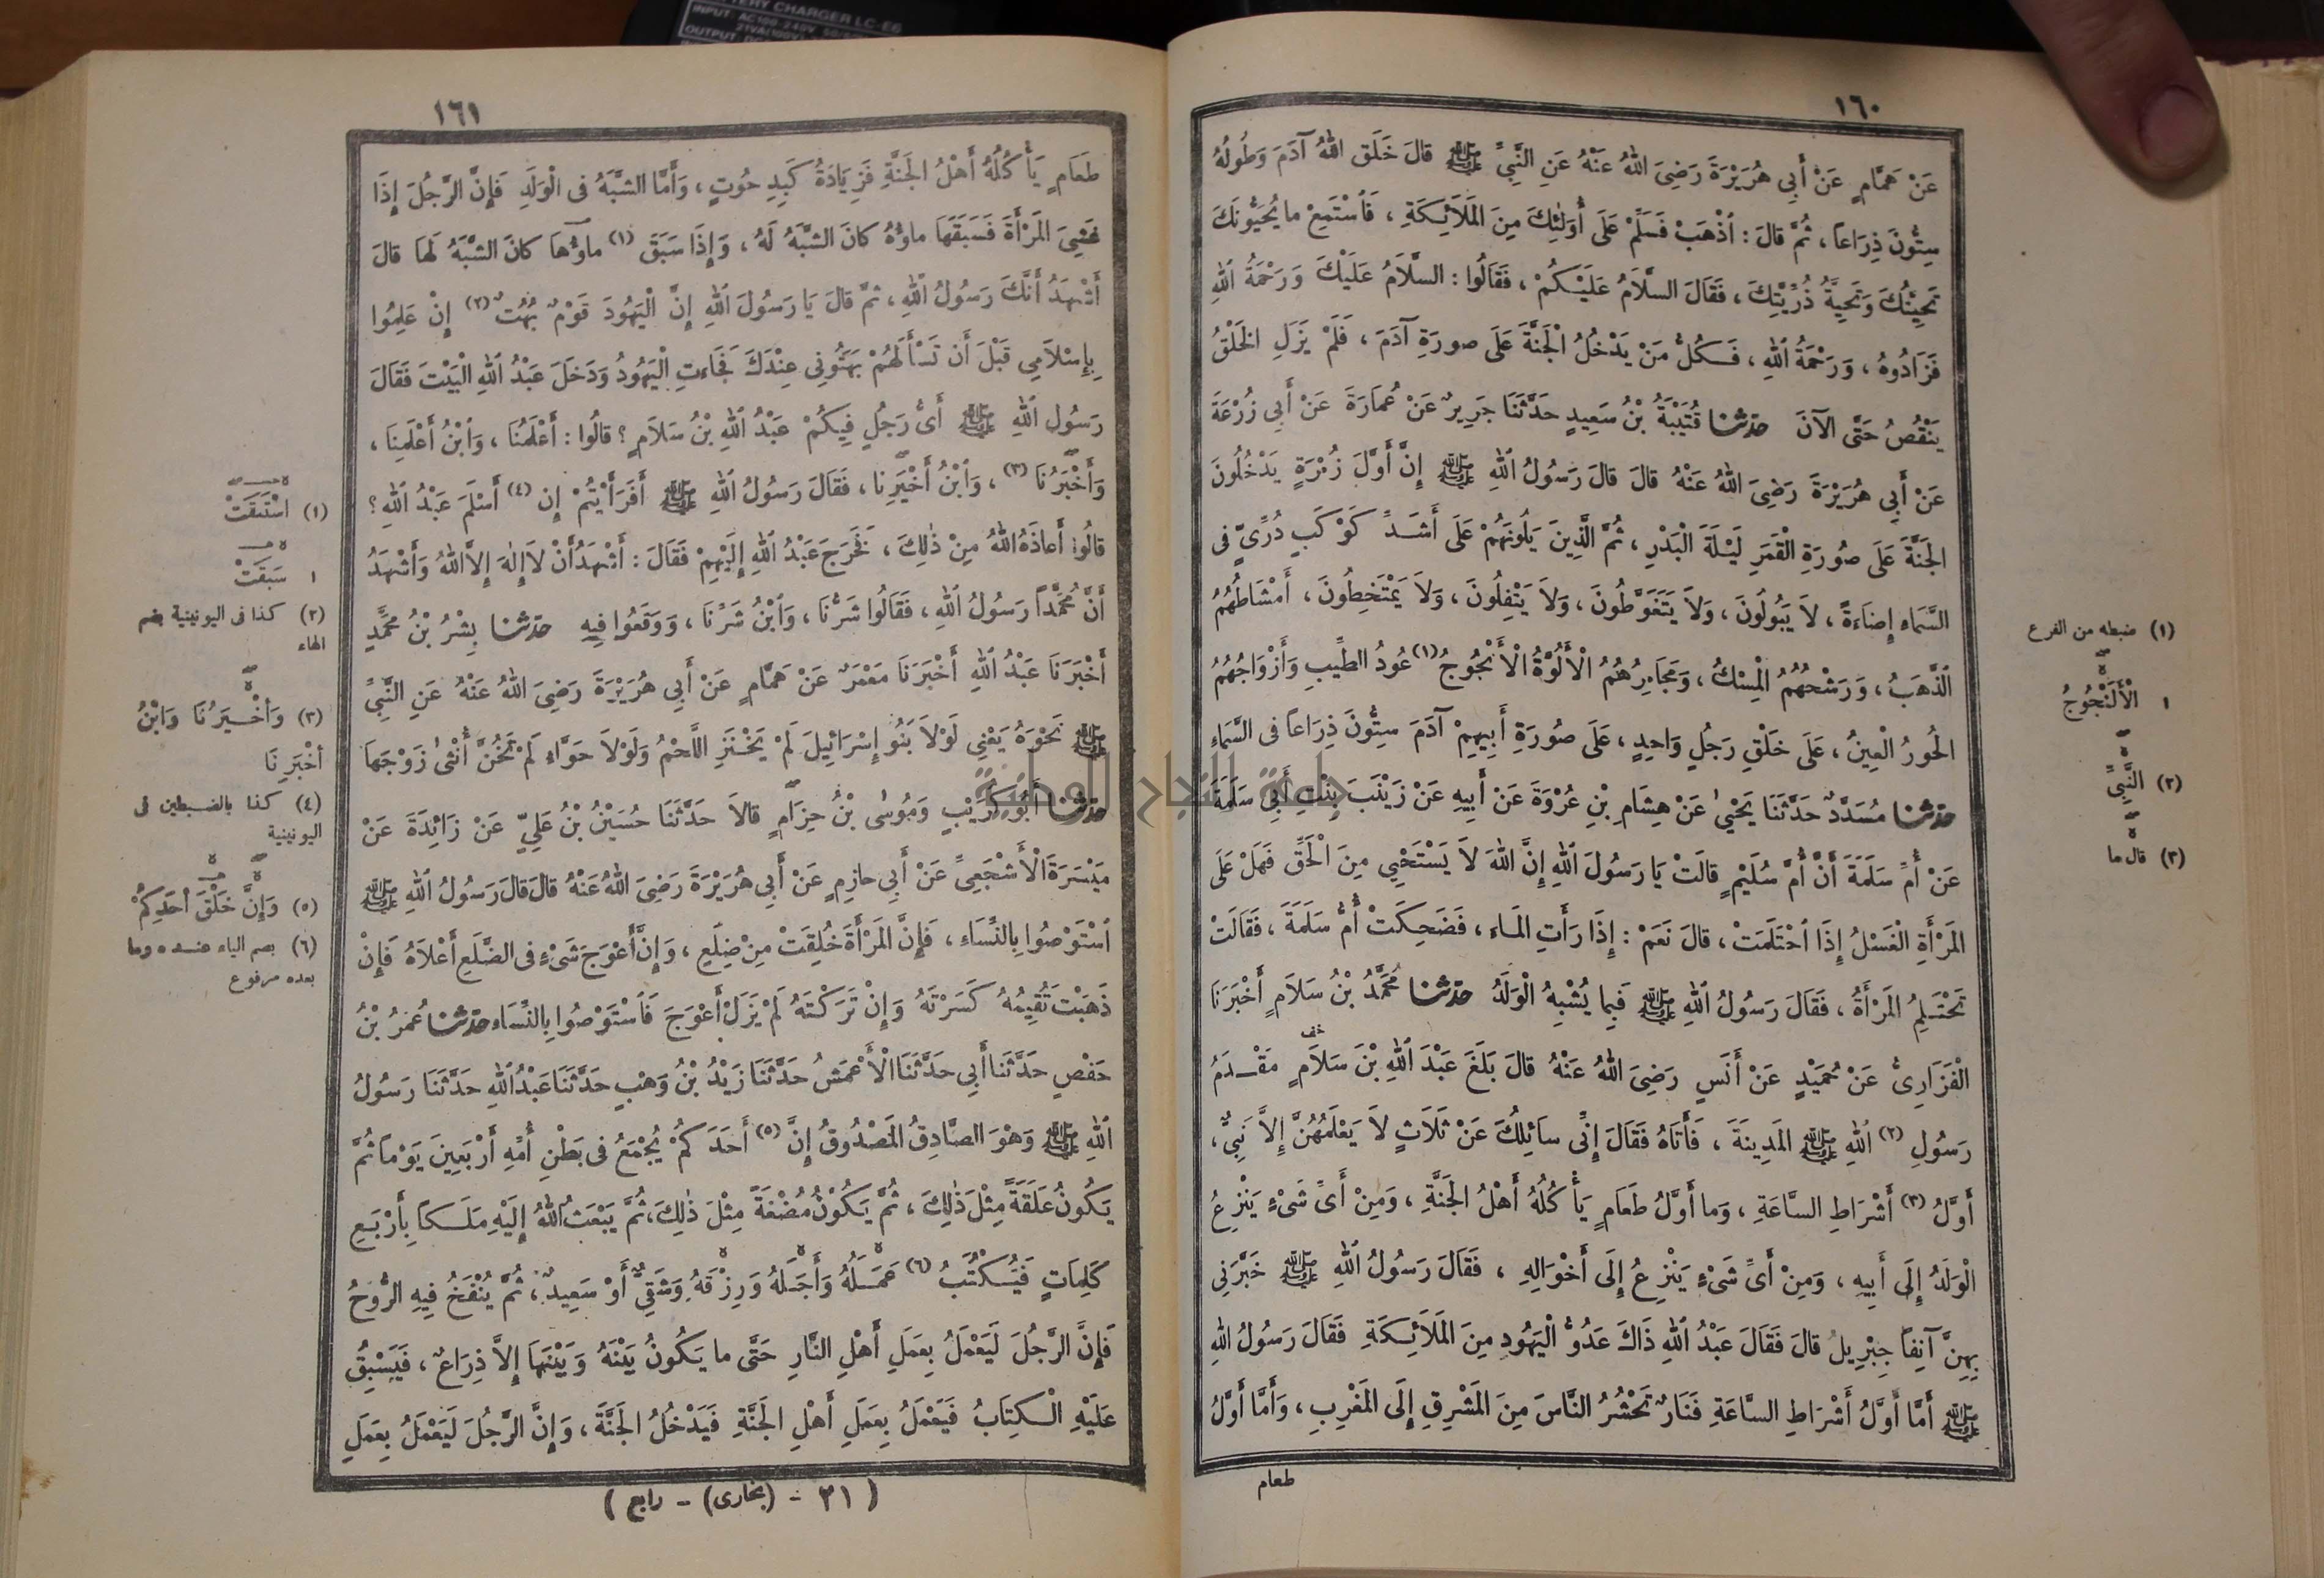 TERY CHARGER LC-E6
INPUT : AC100-240V 50/60
OUTPUT :
١٦٠
عَنْ هَمَّامٍ عَنْ أَبِي هُرَيْرَةَ رَضِيَ اللهُ عَنْهُ عَنِ النَّبِيِّ ﷺ قالَ خَلَقَ اللهُ آدَمَ وَطُولُهُ
سِتُّونَ ذِرَاعاً ، ثُمَّ قالَ : ٱذْهَبْ فَسَلِّمْ عَلَى أُولٰئِكَ مِنَ المَلَائِكَةِ ، فَٱسْتَمِعْ ما يُحَيُّونَكَ
تَحِيَّتُكَ وَتَحِيَّةُ ذُرِّيَّتِكَ ، فَقَالَ السَّلاَمُ عَلَيْكُمْ ، فَقَالُوا : السَّلاَمُ عَلَيْكَ وَرَحْمَةُ ٱللهِ
فَزَادُوهُ ، وَرَحْمَةُ ٱللهِ ، فَكُلُّ مَنْ يَدْخُلُ الْجَنَّةَ عَلَى صورَةِ آدَمَ ، فَلَمْ يَزَلِ الخَلْقُ
يَنْقُصُ حَتَّى الآنَ حدّثنا قُتَيْبَةُ بْنُ سَعِيدٍ حَدَّثَنَا جَرِيرٌ عَنْ عُمَارَةَ عَنْ أَبِي زُرْعَةَ
عَنْ أَبِي هُرَيْرَةَ رَضِيَ اللهُ عَنْهُ قالَ قالَ رَسُولُ ٱللهِ ﷺ إِنَّ أَوَّلَ زُمْرَةٍ يَدْخُلُونَ
الجَنَّةَ عَلَى صُورَةِ الْقَمَرِ لَيْلَةَ الْبَدْرِ ، ثُمَّ الَّذِينَ يَلُونَهُمْ عَلَى أَشَدِّ كَوْكَبٍ دُرِّيٍّ فى
السَّمَاءِ إِضَاءَةً ، لاَ يَبُولُونَ ، وَلاَ يَتَغَوَّطُونَ ، وَلاَ يَتْفِلُونَ ، وَلاَ يَمْتَخِطُونَ ، أَمْشَاطُهُمُ
الذَّهَبُ ، وَرَشْحُهُمُ الْمِسْكُ ، وَمَجَامِرُهُمُ الْأَلُوَّةُ الْأَنْجُوجُ (١) عُودُ الطِّيبِ وَأَزْوَاجُهُمُ
الحُورُ الْعِينُ ، عَلَى خَلْقِ رَجُلٍ وَاحِدٍ ، عَلَى صُورَةِ أَبِيهِمْ آدَمَ سِتُّونَ ذِرَاعاً فى السَّمَاءِ
حدّثنا مُسَدَّدٌ حَدَّثَنَا يَحْيٰى عَنْ هِشَامِ بْنِ عُرْوَةَ عَنْ أَبِيهِ عَنْ زَيْنَبَ بِنْتِ أَبِي سَلَمَةَ
عَنْ أُمِّ سَلَمَةَ أَنَّ أُمَّ سُلَيْمٍ قالَتْ يَا رَسُولَ ٱللهِ إِنَّ اللهَ لاَ يَسْتَحْيِي مِنَ الْحَقِّ فَهَلْ عَلَى
المَرْأَةِ الْغَسْلُ إِذَا ٱحْتَلَمَتْ ، قالَ نَعَمْ : إِذَا رَأَتِ المَاءَ ، فَضَحِكَتْ أُمُّ سَلَمَةَ ، فَقَالَتْ
تَحْتَلِمُ المَرْأَةُ ، فَقَالَ رَسُولُ ٱللهِ ﷺ فَبِما يُشْبِهُ الْوَلَدُ حدّثنا مُحَمَّدُ بْنُ سَلاَمٍ أَخْبَرَنَا
الْفَزَارِىُّ عَنْ حُمَيْدٍ عَنْ أَنَسٍ رَضِىَ اللهُ عَنْهُ قالَ بَلَغَ عَبْدَ ٱللهِ بْنَ سَلاَمٍ مَقْدَمُ
رَسُولِ (٢) ٱللهِ ﷺ المَدِينَةَ ، فَأَتَاهُ فَقَالَ إِنِّى سائِلُكَ عَنْ ثَلاَثٍ لاَ يَعْلَمُهُنَّ إِلاَّ نَبِىٌّ ،
أَوَّلُ (٣) أَشْرَاطِ السَّاعَةِ ، وَما أَوَّلُ طَعَامٍ يَأْكُلُهُ أَهْلُ الجَنَّةِ ، وَمِنْ أَىِّ شَىْءٍ يَنْزِعُ
الْوَلَدُ إِلَى أَبِيهِ ، وَمِنْ أَىِّ شَىْءٍ يَنْزِعُ إِلَى أَخْوَالِهِ ، فَقَالَ رَسُولُ ٱللهِ ﷺ خَبَّرَنِي
بِهِنَّ آنِفاً جِبْرِيلُ قالَ فَقَالَ عَبْدُ ٱللهِ ذَاكَ عَدُوُّ الْيَهُودِ مِنَ المَلَائِكَةِ فَقَالَ رَسُولُ اللهِ
ﷺ أَمَّا أَوَّلُ أَشْرَاطِ السَّاعَةِ فَنَارٌ تَحْشُرُ النَّاسَ مِنَ المَشْرِقِ إِلَى المَغْرِبِ ، وَأَمَّا أَوَّلُ
طعام
(١) ضبطه من الفرع
١ الْأَلَنْجُوجُ
(٢) النَّبِىِّ
(٣) قال ما
١٦١
طَعَامٍ يَأْكُلُهُ أَهْلُ الجَنَّةِ فَزِيَادَةُ كَبِدِ حُوتٍ ، وَأَمَّا الشَّبَهُ فى الْوَلَدِ فَإِنَّ الرَّجُلَ إِذَا
غَشِىَ المَرْأَةَ فَسَبَقَهَا ماؤُهُ كانَ الشَّبَهُ لَهُ ، وَإِذَا سَبَقَ (١) ماؤُها كانَ الشَّبَهُ لَهَا قالَ
أَشْهَدُ أَنَّكَ رَسُولُ اللهِ ، ثُمَّ قالَ يَا رَسُولَ ٱللهِ إِنَّ الْيَهُودَ قَوْمٌ بُهُتٌ (٢) إِنْ عَلِمُوا
بِإِسْلاَمِي قَبْلَ أَن تَسْأَلَهُمْ بَهَتُونِي عِنْدَكَ فَجَاءتِ الْيَهُودُ وَدَخَلَ عَبْدُ ٱللهِ الْبَيْتَ فَقَالَ
رَسُول ٱللهِ ﷺ أَىُّ رَجُلٍ فِيكُمْ عَبْدُ ٱللهِ بْنُ سَلاَمٍ ؟ قالُوا : أَعْلَمُنَا ، وَٱبْنُ أَعْلَمِنَا ،
وَأَخْبَرُنَا (٣) ، وَٱبْنُ أَخْيَرِنَا ، فَقَالَ رَسُولُ اللهِ ﷺ أَفَرَأَيْتُمْ إِن (٤) أَسْلَمَ عَبْدُ اللهِ ؟
قالُوا أَعاذَهُ اللهُ مِنْ ذٰلِكَ ، فَخَرَجَ عَبْدُ ٱللهِ إِلَيْهِمْ فَقَالَ : أَشْهَدُ أَنْ لاَ إِلٰهَ إِلاَّ اللهُ وَأَشْهَدُ
أَنَّ مُحَمَّداً رَسُولُ ٱللهِ ، فَقَالُوا شَرُّنَا ، وَٱبْنُ شَرِّنَا ، وَوَقَعُوا فِيهِ حدّثنا بِشْرُ بْنُ مُحَمَّدٍ
أَخْبَرَنَا عَبْدُ ٱللهِ أَخْبَرَنَا مَعْمَرٌ عَنْ هَمَّامٍ عَنْ أَبِي هُرَيْرَةَ رَضِيَ اللهُ عَنْهُ عَنِ النَّبِيِّ
ﷺ نَحْوَهُ يَعْنِي لَوْلاَ بَنُو إِسْرَائِيلَ لَمْ يَخْنَزِ اللَّحْمُ وَلَوْلاَ حَوَّاءُ لَمْ تَخُنَّ أُنْثٰى زَوْجَهَا
حدّثنا أَبُو كُرَيْبٍ وَمُوسٰى بْنُ حِزَامٍ قالاَ حَدَّثَنَا حُسَيْنُ بْنُ عَلِيٍّ عَنْ زَائِدَةَ عَنْ
مَيْسَرَةَ الْأَشْجَعِىِّ عَنْ أَبِي حازِمٍ عَنْ أَبِي هُرَيْرَةَ رَضِيَ اللهُ عَنْهُ قالَ قالَ رَسُولُ اللهِ ﷺ
ٱسْتَوْصُوا بِالنِّسَاءِ ، فَإِنَّ المَرْأَةَ خُلِقَتْ مِنْ ضِلَعٍ ، وَإِنَّ أَعْوَجَ شَىْءٍ فى الضِّلَعِ أَعْلاَهُ فَإِنْ
ذَهَبْتَ تُقِيمُهُ كَسَرْتَهُ وَإِنْ تَرَكْتَهُ لَمْ يَزَلْ أَعْوَجَ فَٱسْتَوْصُوا بِالنِّسَاءِ حدّثنا عُمَرُ بْنُ
حَفْصٍ حَدَّثَنَا أَبِي حَدَّثَنَا الْأَعْمَشُ حَدَّثَنَا زَيْدُ بْنُ وَهْبٍ حَدَّثَنَا عَبْدُ اللهِ حَدَّثَنَا رَسُولُ
اللهِ ﷺ وَهْوَ الصَّادِقُ المَصْدُوقُ إِنَّ (٥) أَحَدَكُمْ يُجْمَعُ فى بَطْنِ أُمِّهِ أَرْبَعِينَ يَوْماً ثُمَّ
يَكُونُ عَلَقَةً مِثْلَ ذٰلِكَ ، ثُمَّ يَكُونُ مُضْغَةً مِثْلَ ذٰلِكَ ، ثُمَّ يَبْعَثُ اللهُ إِلَيْهِ مَلَكاً بِأَرْبَعِ
كَلِمَاتٍ فَيُكْتَبُ (٦) عَمَلُهُ وَأَجَلُهُ وَرِزْقُهُ وَشَقِىٌّ أَوْ سَعِيدٌ ، ثُمَّ يُنْفَخُ فِيهِ الرُّوحُ
فَإِنَّ الرَّجُلَ لَيَعْمَلُ بِعَمَلِ أَهْلِ النَّارِ حَتَّى ما يَكُونُ بَيْنَهُ وَبَيْنَهَا إِلاَّ ذِرَاعٌ ، فَيَسْبِقُ
عَلَيْهِ الْكِتَابُ فَيَعْمَلُ بِعَمَلِ أَهْلِ الجَنَّةِ فَيَدْخُلُ الجَنَّةَ ، وَإِنَّ الرَّجُلَ لَيَعْمَلُ بِعَمَلِ
( ٢١ - (بخارى) - رابع )
(١) اسْتَبَقَتْ
١ سَبَقَتْ
(٢) كذا فى اليونينية بضم
الهاء
(٣) وَأَخْيَرُنَا وَابْنُ
أَخْيَرِنَا
(٤) كذا بالضبطين فى
اليونينية
(٥) وَإِنَّ خَلْقَ أَحَدِكُمْ
(٦) بضم الياء عنده وما
بعده مرفوع
جامعة النجاح الوطنية